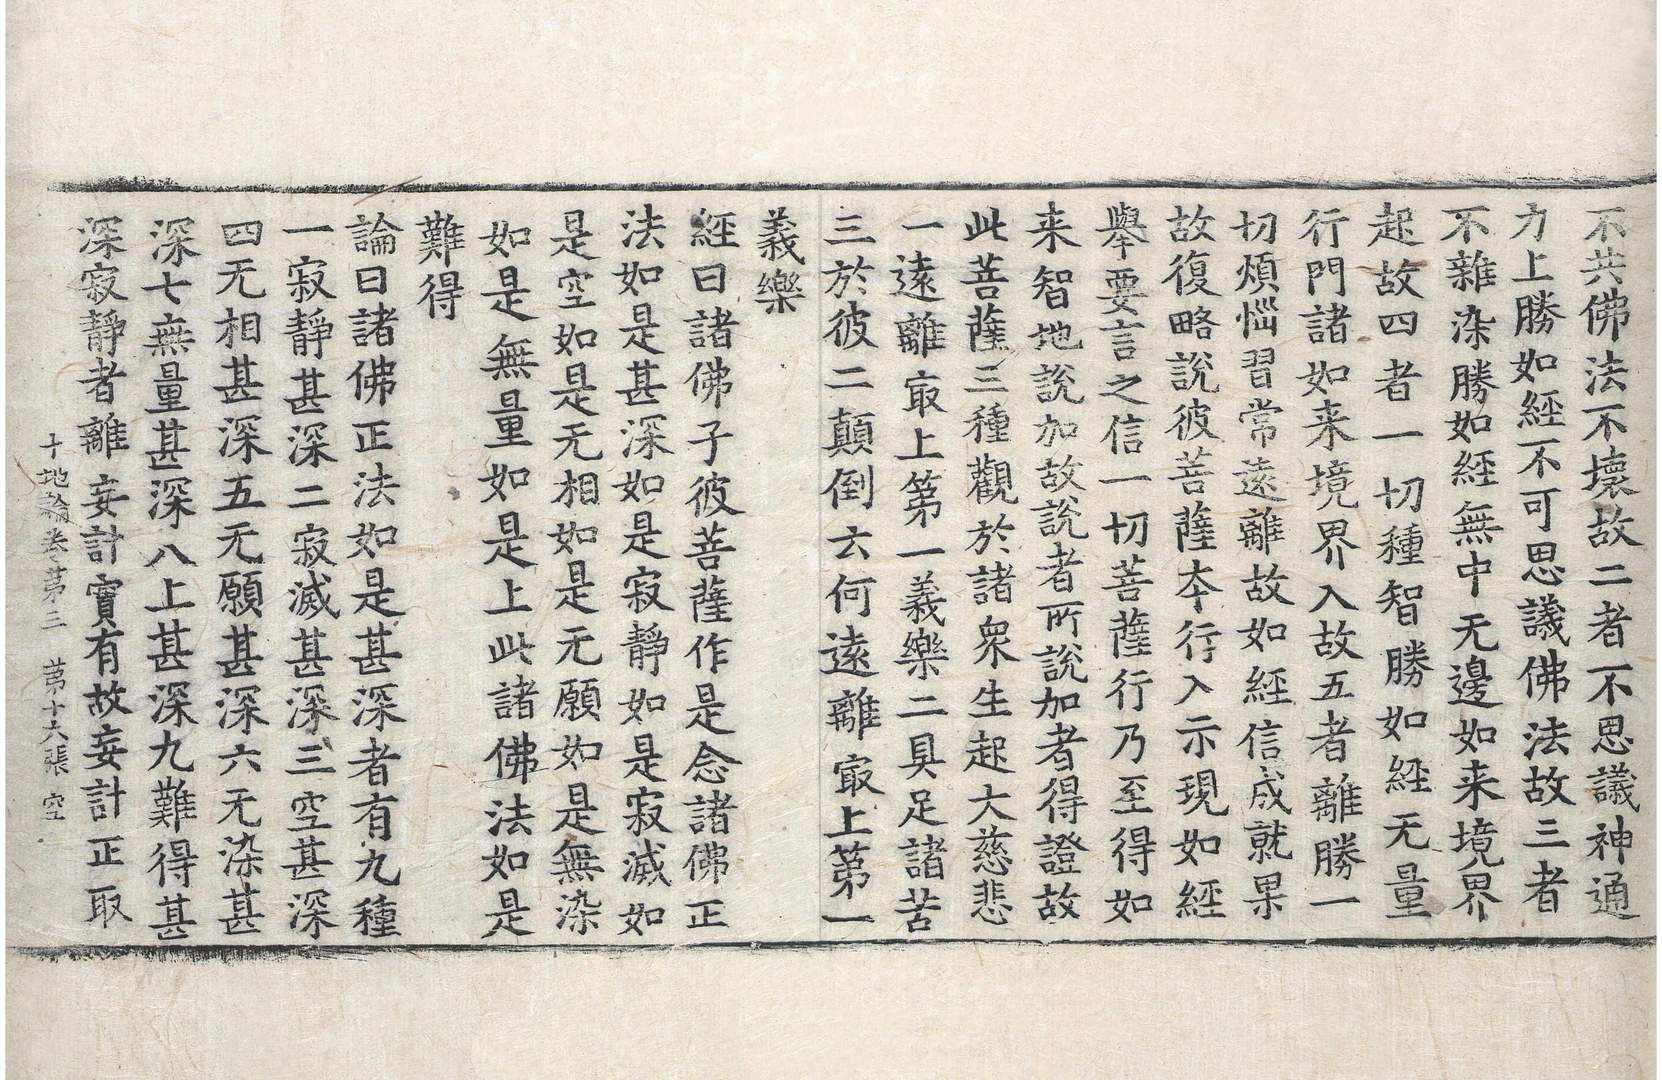 不共佛法不壞故二者不思議神通
力上勝如經不可思議佛法故三者
不雜染勝如經無中无邊如来境界
起故四者一切種智勝如經无量
行門諸如来境界入故五者離勝一
切煩惱習常遠離故如經信成就果
故復略說彼菩薩本行入示現如經
舉要言之信一切菩薩行乃至得如
来智地說加故說者所說加者得證故
此菩薩三種觀於諸衆生起大慈悲
一遠離㝡上第一義樂二具足諸苦
三於彼二顛倒云何遠離㝡上第一
義樂
經曰諸佛子彼菩薩作是念諸佛正
法如是甚深如是寂靜如是寂滅如
是空如是无相如是无願如是無染
如是無量如是上此諸佛法如是
難得
論曰諸佛正法如是甚深者有九種
一寂靜甚深二寂滅甚深三空甚深
四无相甚深五无願甚深六无染甚
深七無量甚深八上甚深九難得甚
深寂靜者離妄計實有故妄計正取
十地論卷苐三 苐十六張 空